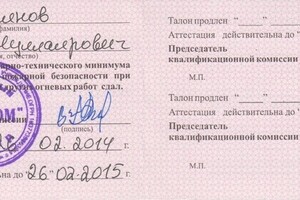 енов
фамилия)
отчество)
рно-технического минимума
пожарной безопасности при
огневых работ сдал.
(подпись)
02. 2014
26.02.2015
Талон продлен "
Аттестация действительна до "
Председатель
квалификационной комиссии
М.П.
Талон продлен "
Аттестация действительна до "
Председатель
квалификационной комиссии
М.П.